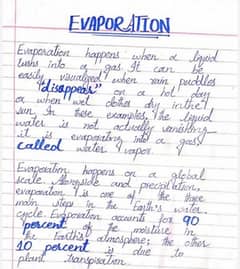 EVAPORATION
Evaporation happens when a liquid
turns into a gas. It can be
easily visualized when rain puddles
"disappear" on a hot day
or when wet clothes dry in the
sun. In these examples, the liquid
water is not actually vanishing
it is evaporating into a gas,
called water vapor.
Evaporation happens on a global
scale. Alongside and precipitation,
evaporation is one of the three
main steps in the Earth's water
cycle. Evaporation accounts for 90
percent of the moisture in
the Earth's atmosphere; the other
10 percent is due to
plant transpiration